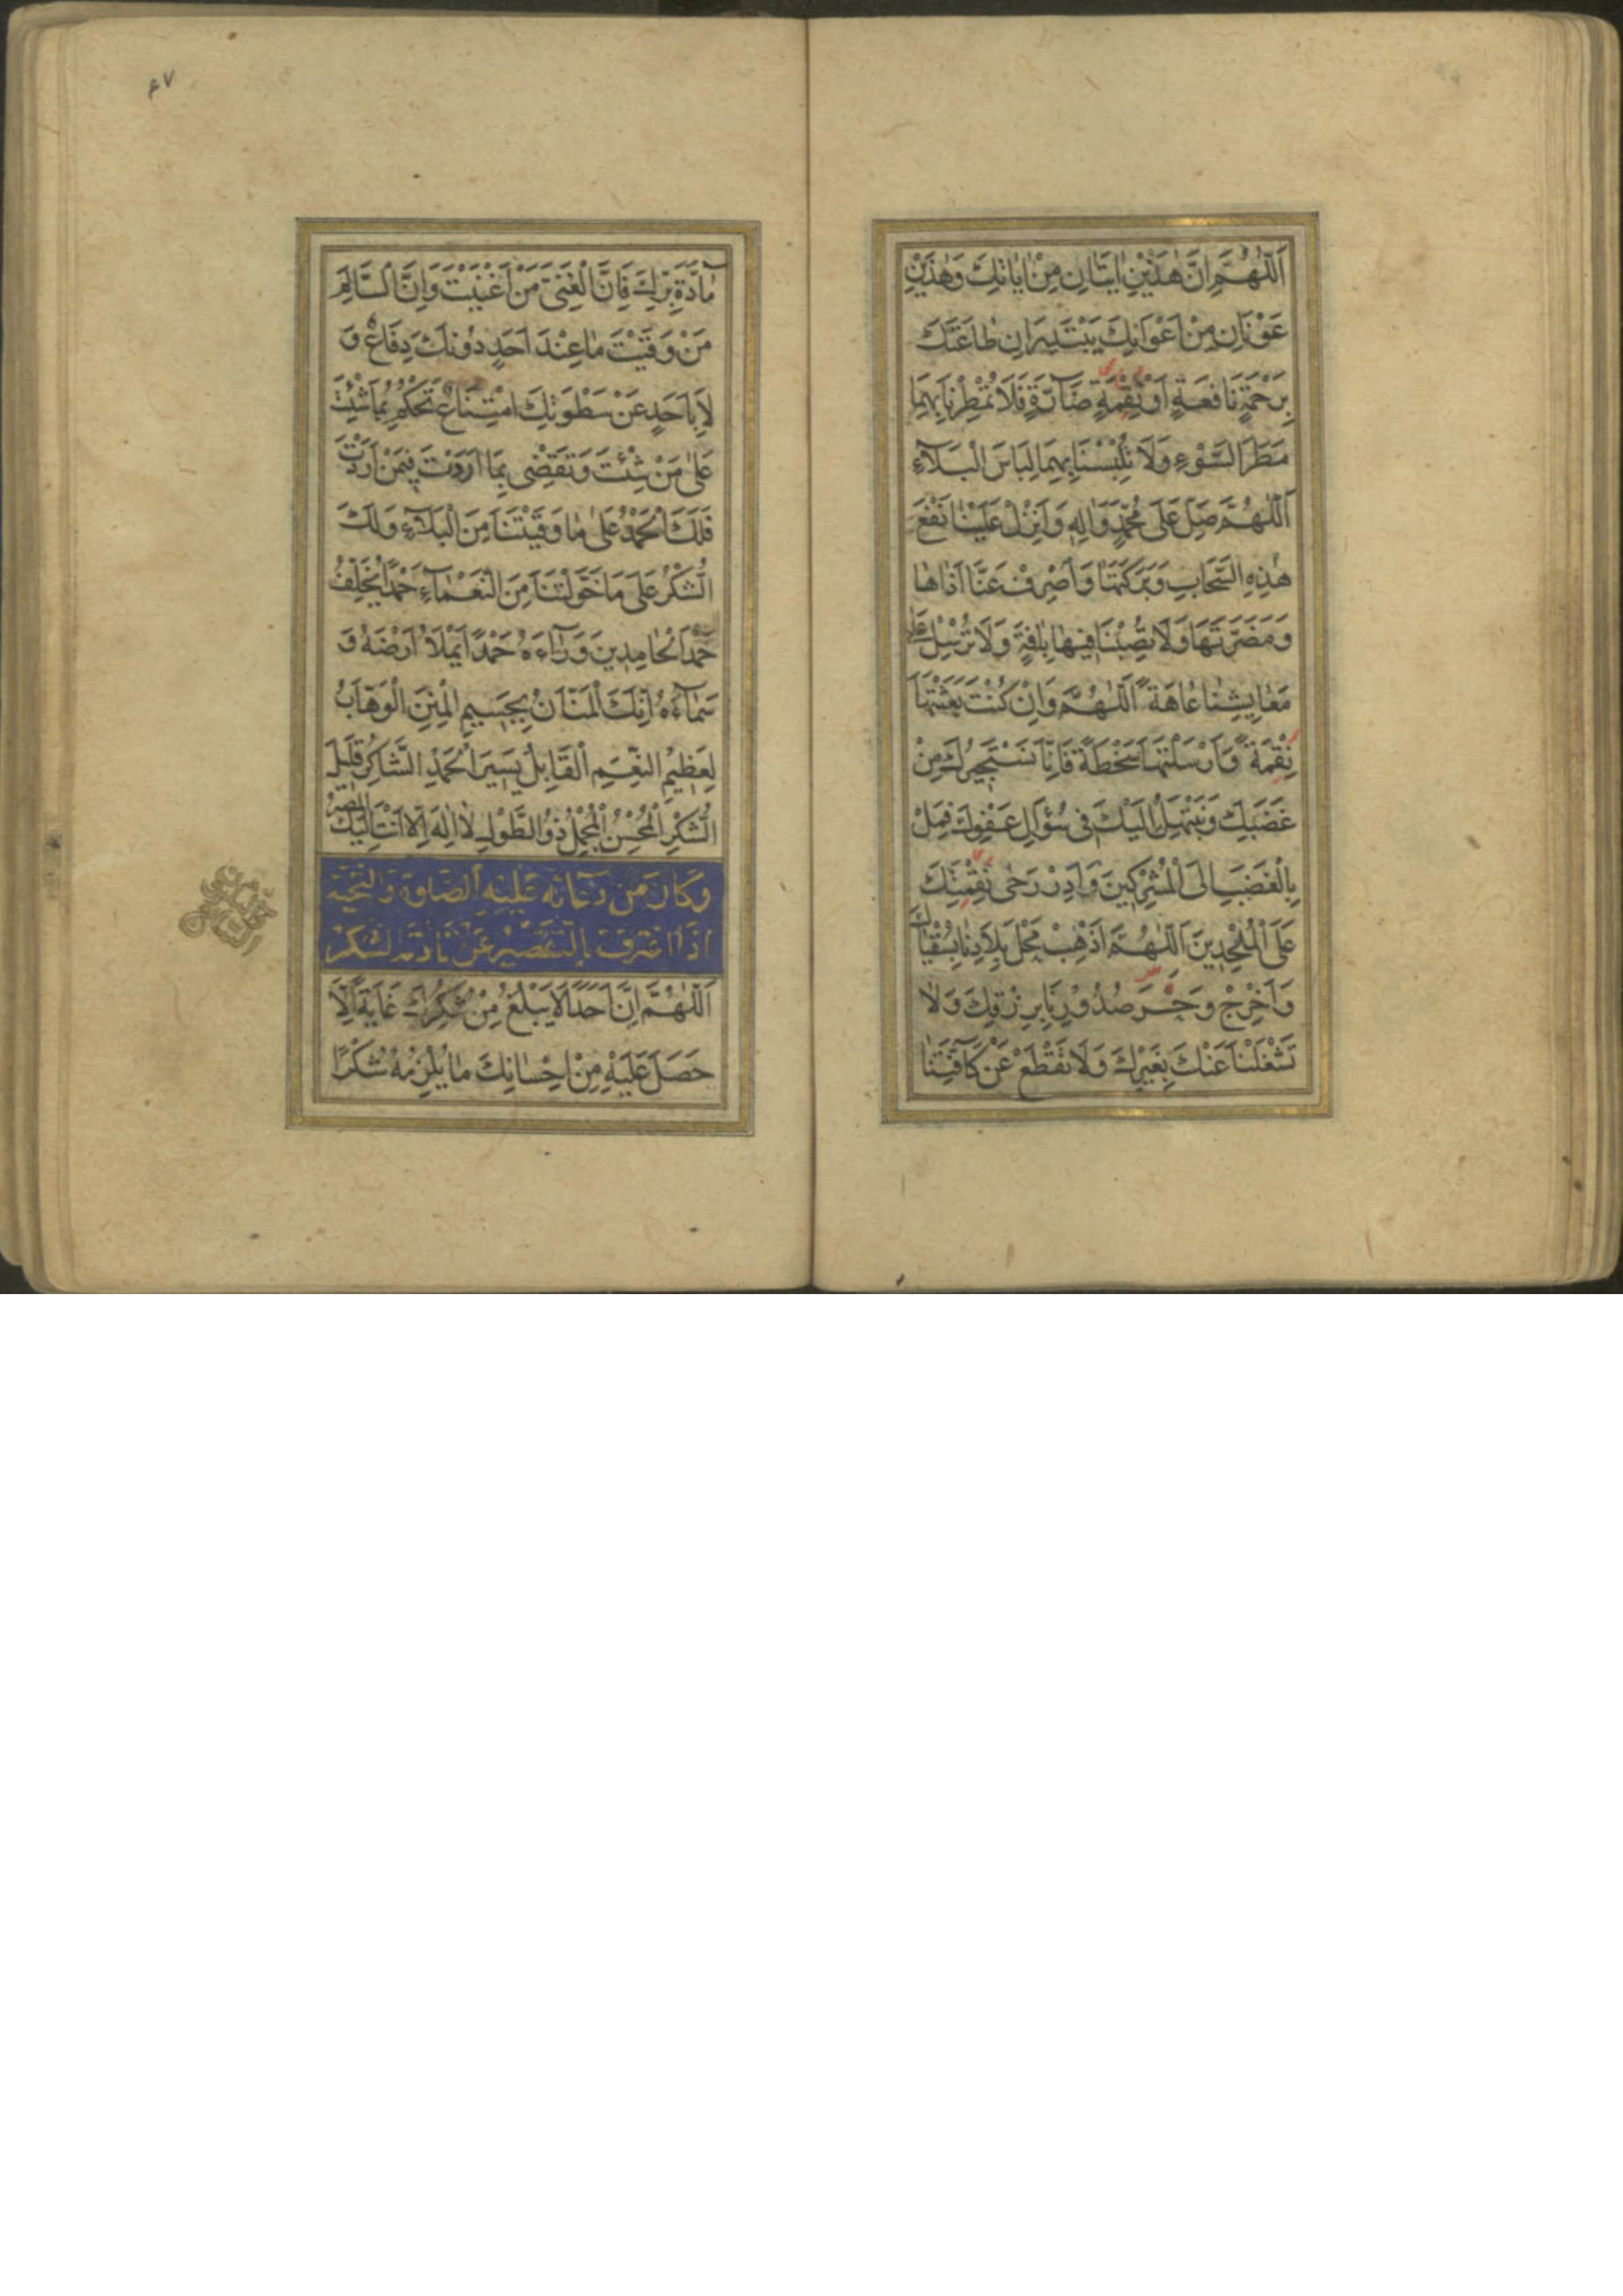 اَللّٰهُمَّ اِنَّ هٰذَيْنِ اٰيَتَانِ مِنْ اٰيَاتِكَ وَهٰذَيْنِ
عَوْنَانِ مِنْ اَعْوَانِكَ يَبْتَدِرَانِ طَاعَتَكَ
بِرَحْمَةٍ نَافِعَةٍ اَوْ نَقِمَةٍ ضَآرَّةٍ فَلَا تُمْطِرْنَا بِهِمَا
مَطَرَ السَّوْءِ وَلَا تُلْبِسْنَا بِهِمَا لِبَاسَ الْبَلَآءِ
اَللّٰهُمَّ صَلِّ عَلٰى مُحَمَّدٍ وَاٰلِهِ وَاَنْزِلْ عَلَيْنَا نَفْعَ
هٰذِهِ السَّحَابِ وَبَرَكَتَهَا وَاصْرِفْ عَنَّا اَذَاهَا
وَمَضَرَّتَهَا وَلَا تُصِبْنَا فِيهَا بِاٰفَةٍ وَلَا تُرْسِلْ عَلٰى
مَعَايِشِنَا عَاهَةً اَللّٰهُمَّ وَاِنْ كُنْتَ بَعَثْتَهَا
نِقْمَةً وَاَرْسَلْتَهَا سَخْطَةً فَاِنَّا نَسْتَجِيرُكَ مِنْ
غَضَبِكَ وَنَبْتَهِلُ اِلَيْكَ فِى سُؤَالِ عَفْوِكَ فَمِلْ
بِالْغَضَبِ اِلَى الْمُشْرِكِينَ وَاَدِرْ رَحٰى نَقِمَتِكَ
عَلَى الْمُلْحِدِينَ اَللّٰهُمَّ اَذْهِبْ مَحْلَ بِلَادِنَا بِسُقْيَاكَ
وَاَخْرِجْ وَحَرَ صُدُورِنَا بِرِزْقِكَ وَلَا
تَشْغَلْنَا عَنْكَ بِغَيْرِكَ وَلَا تَقْطَعْ عَنْ كَآفَّتِنَا
۶۷
مَآدَّةَ بِرِّكَ فَاِنَّ الْغَنِىَّ مَنْ اَغْنَيْتَ وَاِنَّ السَّالِمَ
مَنْ وَقَيْتَ مَا عِنْدَ اَحَدٍ دُونَكَ دِفَاعٌ وَ
لَا بِاَحَدٍ عَنْ سَطْوَتِكَ امْتِنَاعٌ تَحْكُمُ بِمَا شِئْتَ
عَلٰى مَنْ شِئْتَ وَتَقْضِى بِمَا اَرَدْتَ فِيمَنْ اَرَدْتَ
فَلَكَ الْحَمْدُ عَلٰى مَا وَقَيْتَنَا مِنَ الْبَلَآءِ وَلَكَ
الشُّكْرُ عَلٰى مَا خَوَّلْتَنَا مِنَ النَّعْمَآءِ حَمْدًا يُخَلِّفُ
حَمْدَ الْحَامِدِينَ وَرَآءَهُ حَمْدًا يَمْلَأُ اَرْضَهُ وَ
سَمَآءَهُ اِنَّكَ الْمَنَّانُ بِجَسِيمِ الْمِنَنِ الْوَهَّابُ
لِعَظِيمِ النِّعَمِ الْقَابِلُ يَسِيرَ الْحَمْدِ الشَّاكِرُ قَلِيلَ
الشُّكْرِ الْمُحْسِنُ الْمُجْمِلُ ذُو الطَّوْلِ لَا اِلٰهَ اِلَّا اَنْتَ اِلَيْكَ الْمَصِيرُ
وَكَانَ مِنْ دُعَائِهِ عَلَيْهِ الصَّلٰوةُ وَالتَّحِيَّة
اِذَا اعْتَرَفَ بِالتَّقْصِيرِ عَنْ تَاْدِيَةِ الشُّكْرِ
اَللّٰهُمَّ اِنَّ اَحَدًا لَا يَبْلُغُ مِنْ شُكْرِكَ غَايَةً اِلَّا
حَصَلَ عَلَيْهِ مِنْ اِحْسَانِكَ مَا يُلْزِمُهُ شُكْرًا